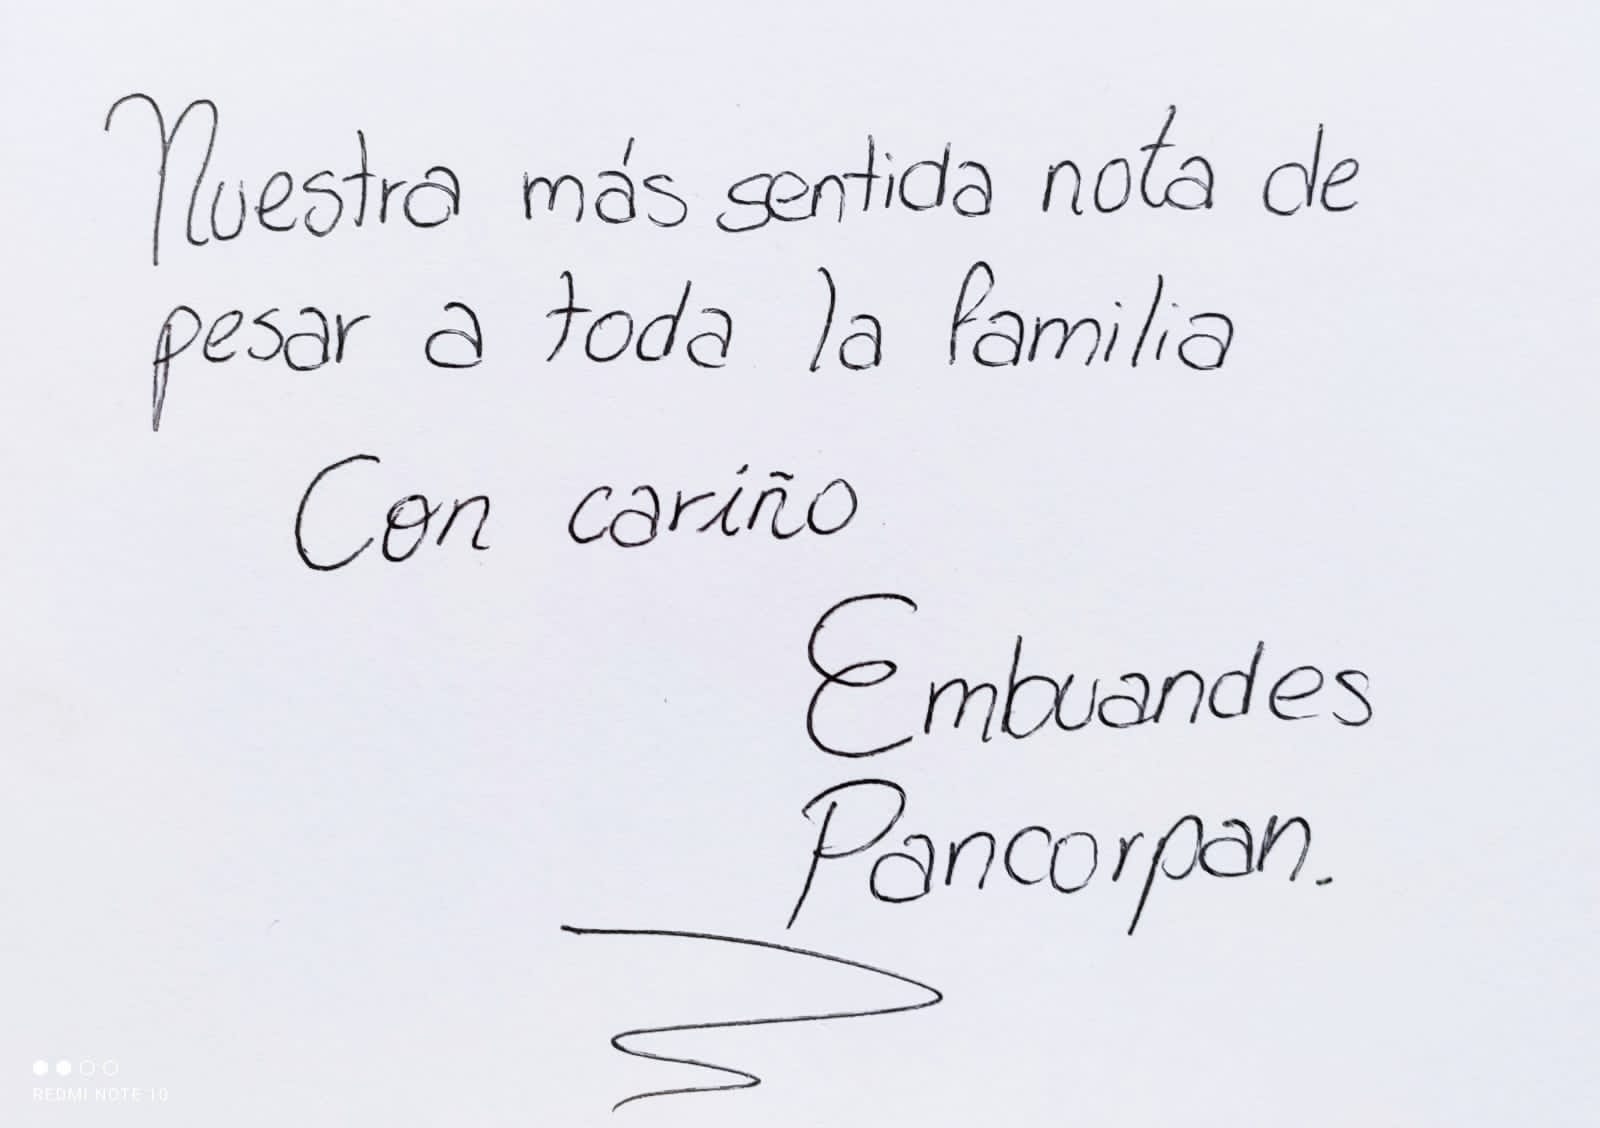 Nuestra más sentida nota de
pesar a toda la familia
Con cariño
Embuandes
Pancorpan.
REDMI NOTE 10